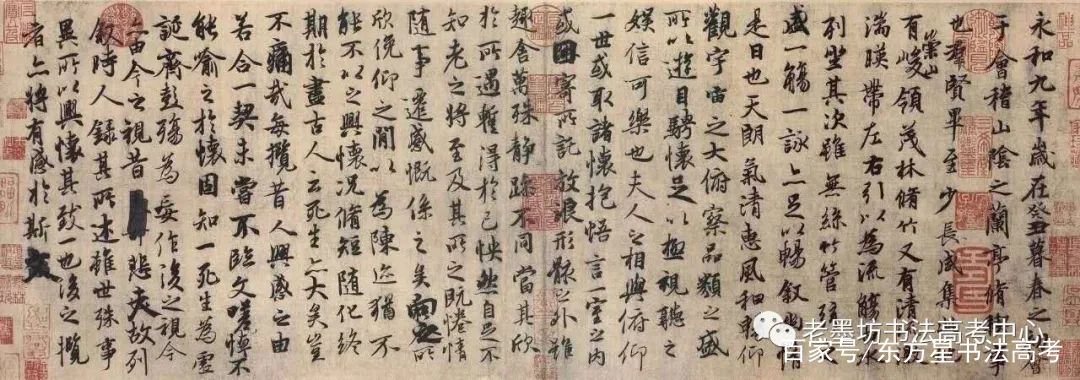 永和九年歲在癸丑暮春之會
于會稽山陰之蘭亭脩禊事
也群賢畢至少長咸集
有崇山峻領茂林脩竹又有清
湍暎帶左右引以為流觴水
列坐其次雖無絲竹管弦
盛一觴一詠亦足以暢叙幽情
是日也天朗氣清惠風和暢仰
觀宇宙之大俯察品類之盛
所以遊目騁懷足以極視聽之
娛信可樂也夫人之相與俯仰
一世或取諸懷抱悟言一室之內
或因寄所託放浪形骸之外雖
趣舍萬殊靜躁不同當其欣
於所遇暫得於己怏然自足不
知老之將至及其所之既惓情
隨事遷感慨係之矣向之所
欣俛仰之閒以為陳迹猶不
能不以之興懷況脩短隨化終
期於盡古人云死生亦大矣豈
不痛哉每攬昔人興感之由
若合一契未嘗不臨文嗟悼不
能喻之於懷固知一死生為虛
誕齊彭殤為妄作後之視今
亦由今之視昔悲夫故列
叙時人錄其所述雖世殊事
異所以興懷其致一也後之攬
者亦將有感於斯文
老墨坊书法高考中心
百家号/东方星书法高考